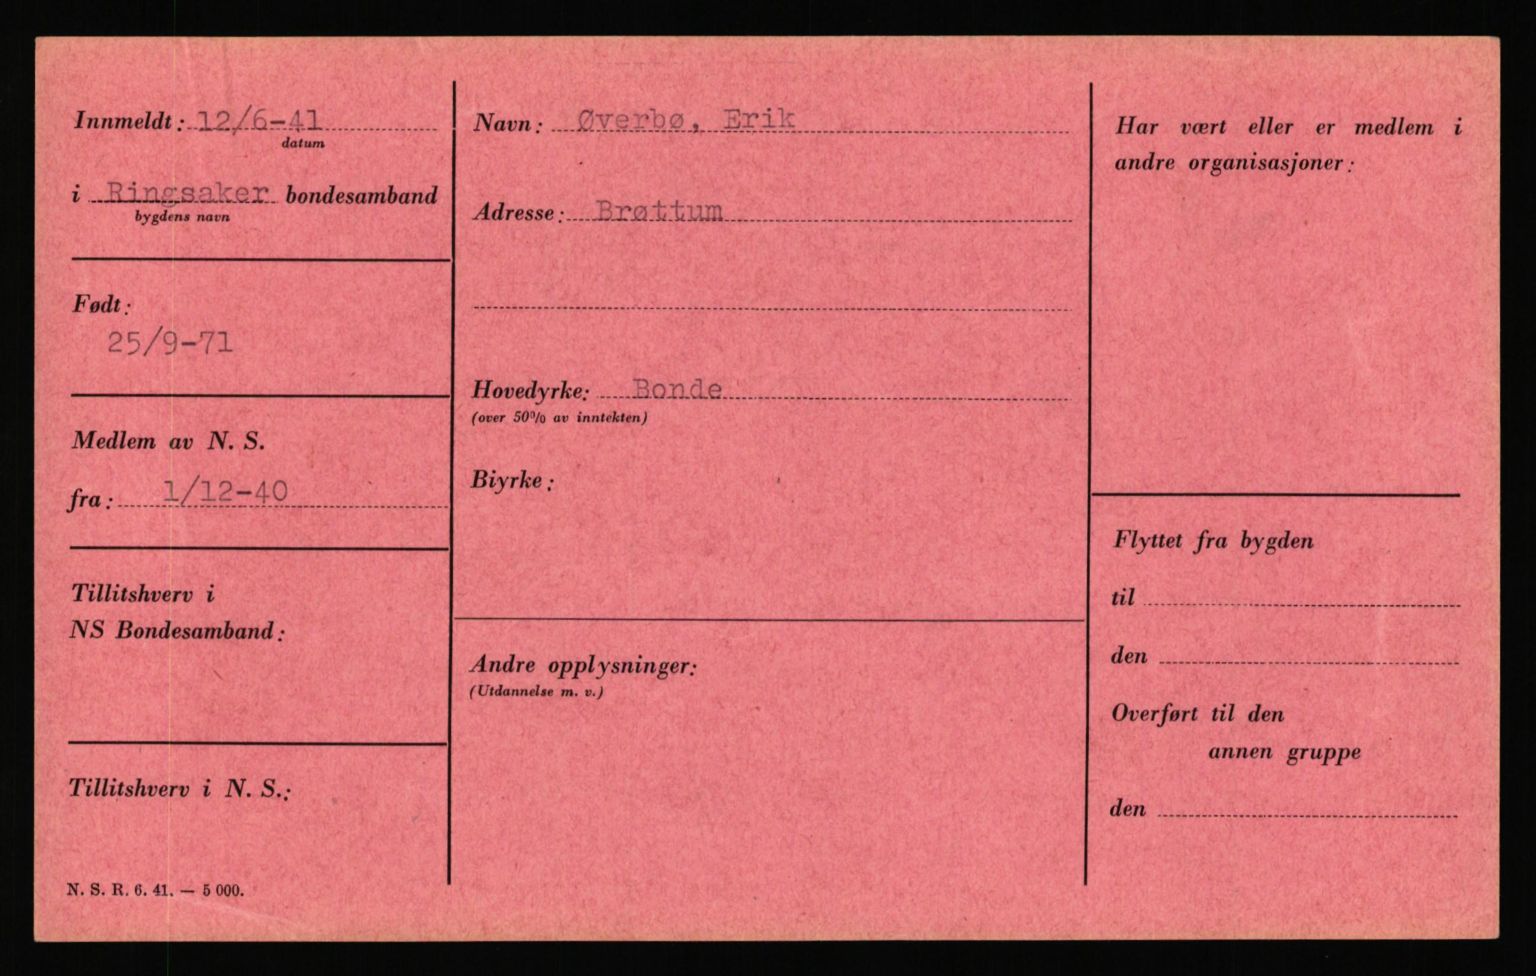 Innmeldt: 12/6-41
datum
i Ringsaker bondesamband
bygdens navn
Født:
25/9-71
Medlem av N. S.
fra: 1/12-40
Tillitshverv i
NS Bondesamband:
Tillitshverv i N. S.:
N. S. R. 6. 41. — 5 000.
Navn: Øverbø, Erik
Adresse: Brøttum
Hovedyrke: Bonde
(over 50% av inntekten)
Biyrke:
Andre opplysninger:
(Utdannelse m. v.)
Har vært eller er medlem i
andre organisasjoner:
Flyttet fra bygden
til
den
Overført til den
annen gruppe
den